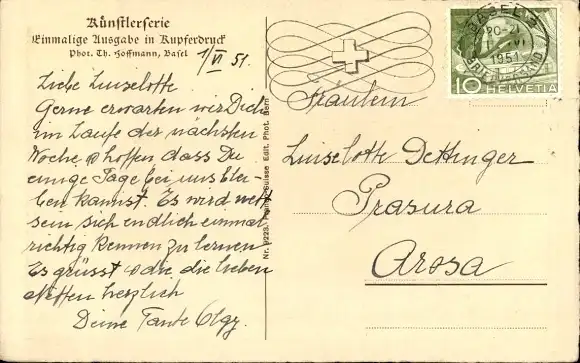 Künstlerserie
Einmalige Ausgabe in Kupferdruck
Phot. Th. Hoffmann, Basel
1/VI 51.
Liebe Luiselotte
Gerne erwarten wir Dich
im Laufe der nächsten
Woche & hoffen dass Du
einige Tage bei uns blei-
ben kannst. Es wird nett
sein sich endlich einmal
richtig kennen zu lernen
Es grüsst die lieben
herzlich
Deine Tante Olgy.
Suisse Edit. Phot. Bern
Fräulein
Luiselotte Dettinger
Prasura
Arosa
BASEL 2
20-21
1951
BRIEFVERSAND
10 HELVETIA